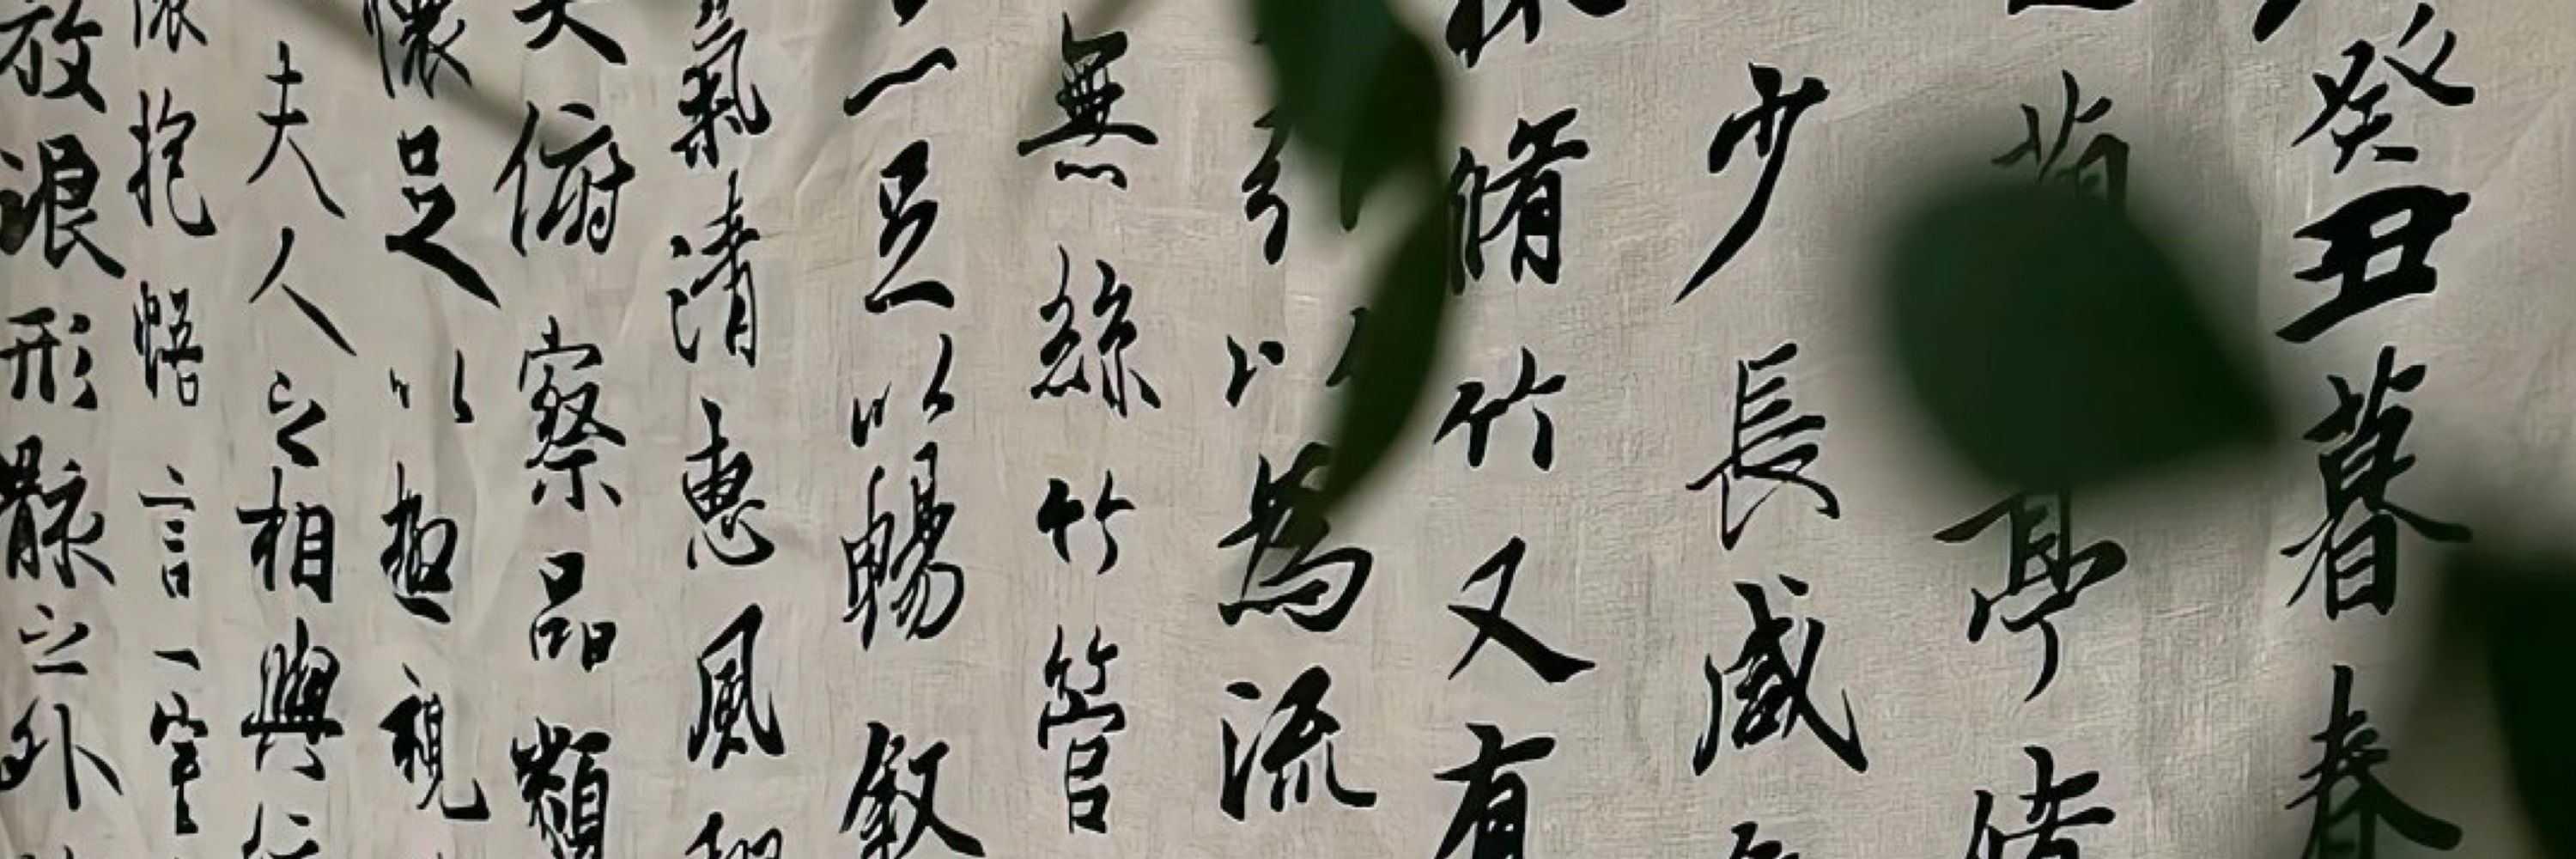 癸丑暮春
亭脩
少長咸
脩竹又有
為流
無絲竹管
足以暢敘
氣清惠風和
俯察品類
懷足以極視
夫人之相與
抱悟言一室
放浪形骸之外